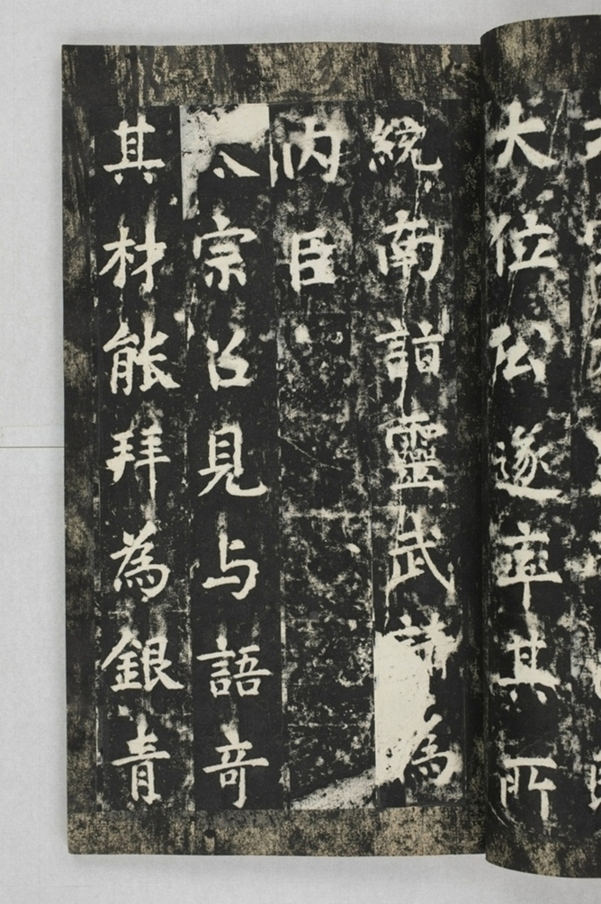 大位公遂率其所
統南詣靈武請為
内臣
太宗召見与語奇
其材能拜為銀青